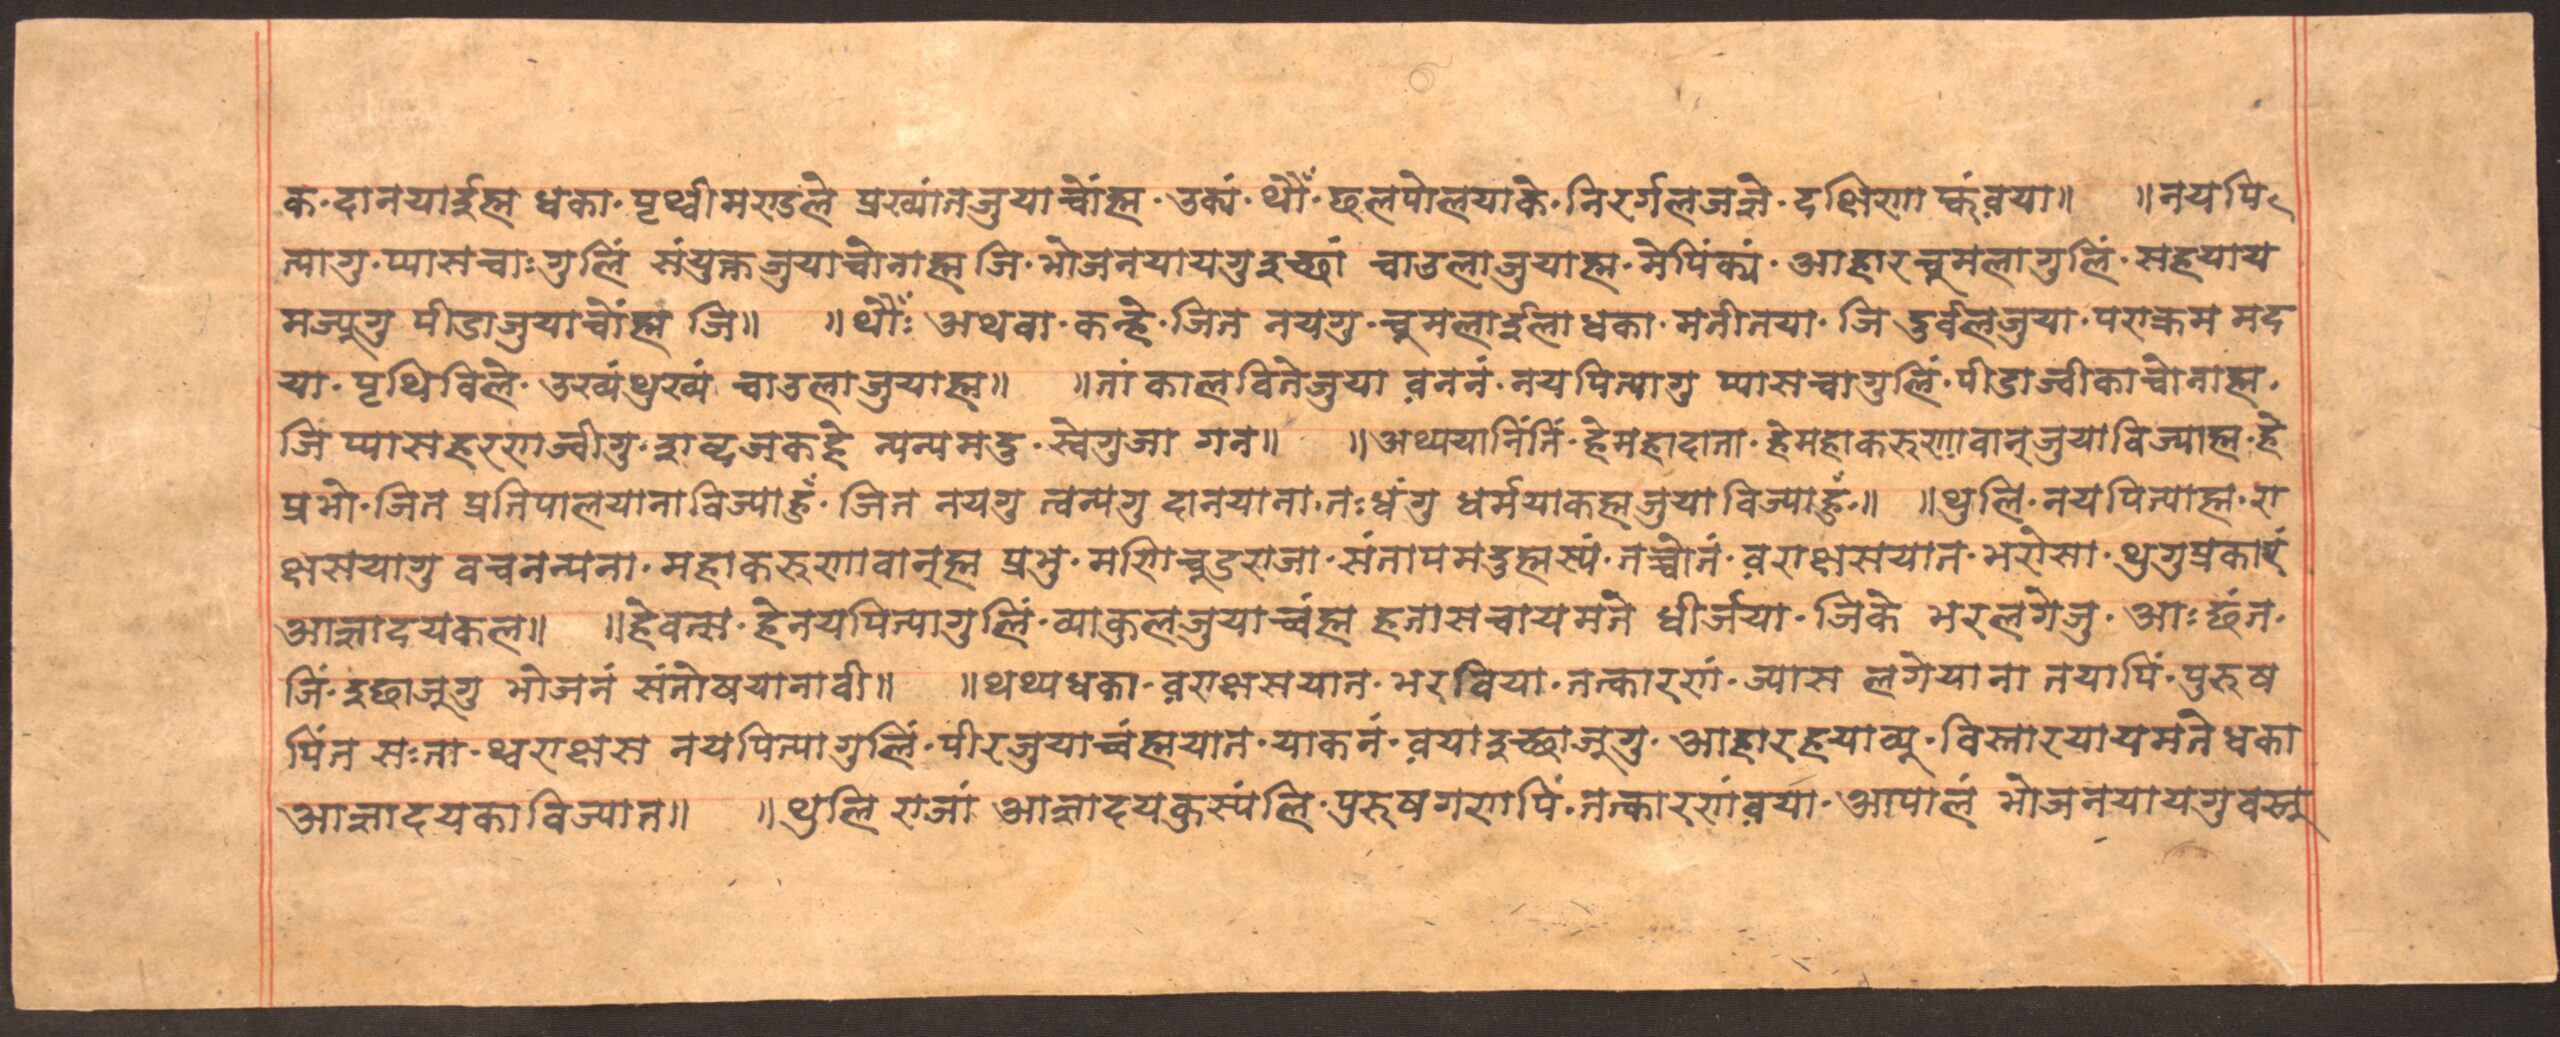 क॰दानयाईह्म धका॰पृथ्वीमण्डले प्रख्यांतजुयाच्वोंह्म॰उक्यं॰थौँ॰छलपोलयाके॰निरर्गलजज्ञे॰दक्षिणा फ्वंव़या॥ ॥नयपि
त्यागु॰प्यासचाःगुलिं संयुक्तजुयाचोनाह्म जि॰भोजनयायगुइच्छां चाउलाजुयाह्म॰मेपिंक्यं॰आहारचूमलागुलिं॰सहयाय
मज्यूगु पीडाजुयाचोंह्म जि॥ ॥थौँः अथवा॰कन्हे॰जित नयगु॰चूमलाईला धका॰मतीतया॰जि दुर्वलजुया॰पराक्रम मद
या॰पृथिविले॰उख्यंथुख्यं चाउलाजुयाह्म॥ ॥तां कालवितेजुया व़नतं॰नयपित्यागु प्यासचागुलिं॰पीडाज्वीकाचोनाह्म॰
जि प्यासहरणज्वीगु॰द्राव्यजकहे त्यत्यमदु॰स्वेगुजा गन॥ ॥अथ्ययानिंतिं॰हेमहादाता॰हेमहाकरुणावान्जुयाविज्याह्म॰हे
प्रभो॰जित प्रतिपालयानाविज्याहुँ॰जित नयगु त्वन्यगु दानयाना॰तःधंगु धर्मयाकह्मजुयाविज्याहुँ॰॥ ॥थुलि॰नयपित्याह्म॰रा
क्षसयागु वचनन्यना॰महाकरुणावान्ह्म प्रभु॰मणिचूडराजा॰संतापमदुह्मस्यं॰तच्चोतं॰व़राक्षसयात॰भरोसा॰थुगुप्रकारं
आज्ञादयकल॥ ॥हेवत्स॰हेनयपित्यागुलिं॰व्याकुलजुयाच्वंह्म हतासचायमते धीर्जया॰जिके भरलगेजु॰आःछंत॰
जिं॰इछाजूगु भोजनं संतोषयानावी॥ ॥थथ्यधका॰व़राक्षसयात॰भरविया॰तत्कारणं॰ज्यास लगेयाना तयापिं॰पुरुष
पिंत सःता॰थ्वराक्षस नयपित्यागुलिं॰पीरजुयाच्वंह्मयात॰याकनं॰व़याइच्छाजूगु॰आहारहयाव्यु॰विस्तारयायमते धका
आज्ञादयकाविज्यात॥ ॥थुलि राजां आज्ञादयकुस्यंलि॰पुरुषगणपिं॰तत्कारणंव़या॰आपालं भोजनयायगुवस्तु